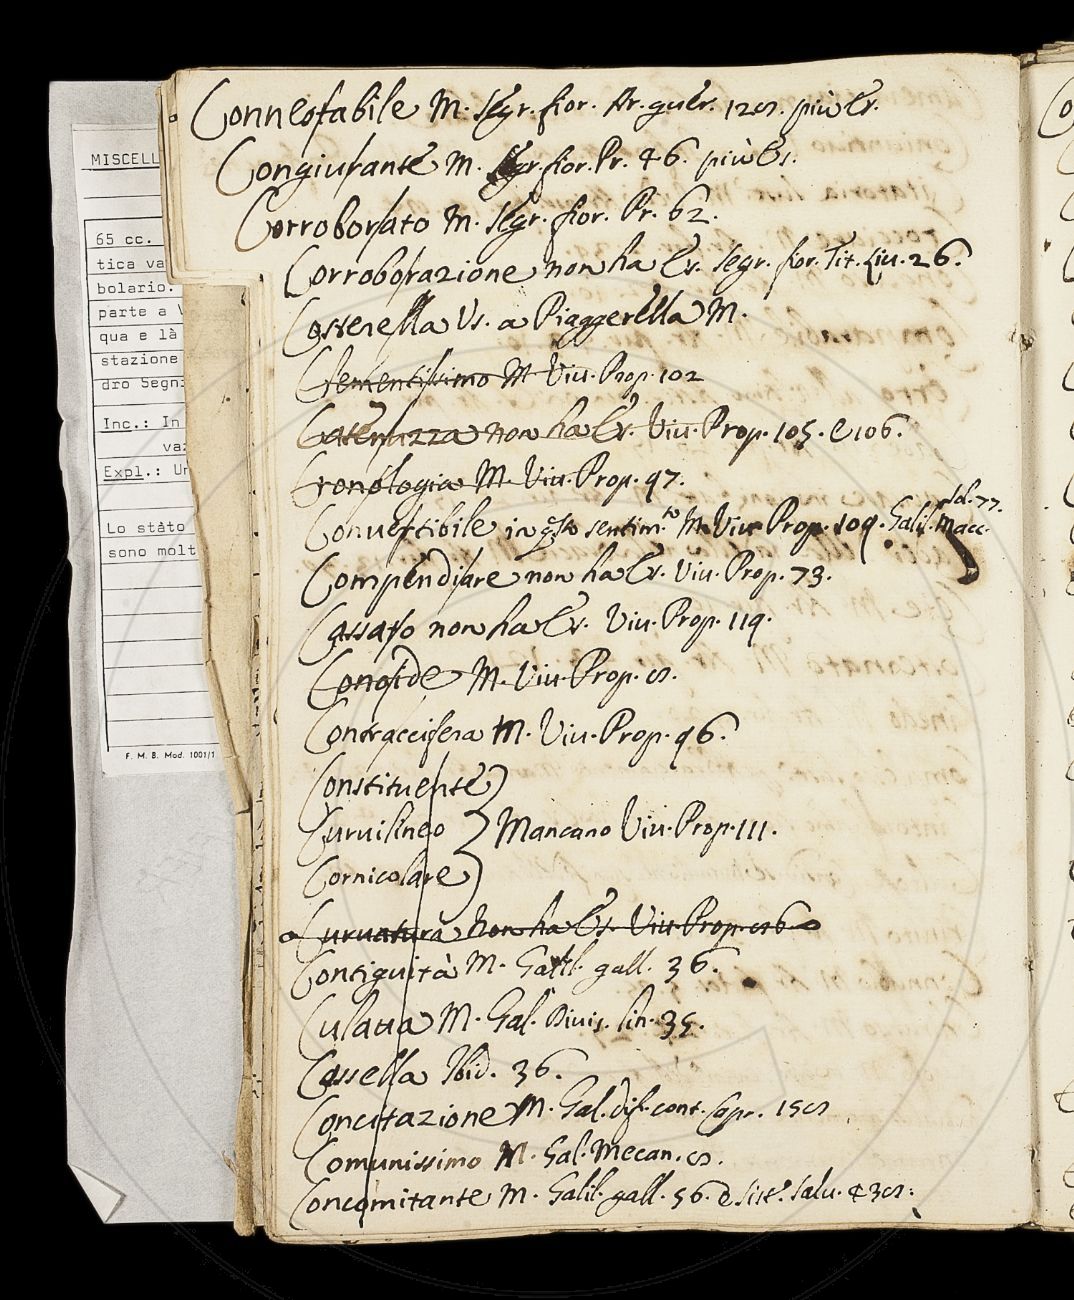 Connestabile M. Segr. fior. Ar. guer. 128. più Es.
Congiurante M. Segr. fior. Pr. 46. più Es.
Corroborato M. Segr. fior. Pr. 62.
Corroborazione non ha Es. Segr. fior. Tit. Liu. 26.
Costerella Vs. a Piaggerella M.
Clementissimo M. Viu. Prop. 102
Catenuzza non ha Es. Viu. Prop. 105. e 106.
Cronologia M. Viu. Prop. 97.
Convertibile in qsto sentim.to M. Viu. Prop. 109. Galil. Macc. Sd. 77.
Compendiare non ha Es. Viu. Prop. 73.
Cassato non ha Es. Viu. Prop. 119.
Conoide M. Viu. Prop. 8.
Contraccifera M. Viu. Prop. 96.
Constituente
Curuilineo Mancano Viu. Prop. 111.
Cornicolare
Curuatura non ha Es. Viu. Prop. 86
Contiguità M. Galil. gall. 36.
Culatta M. Gal. Diuis. lin. 35.
Cassella Ibid. 36.
Concitazione M. Gal. dif. cont. Capr. 158
Comunissimo M. Gal. Mecan. 8.
Concomitante M. Galil. gall. 56. e Sist. Salu. 438.
MISCELL
65 cc.
tica va
bolario.
parte a V
qua e là
stazione
dro Segni
Inc.: In
vaz
Expl.: Un
Lo stato
sono molt
F. M. B. Mod. 1001/1